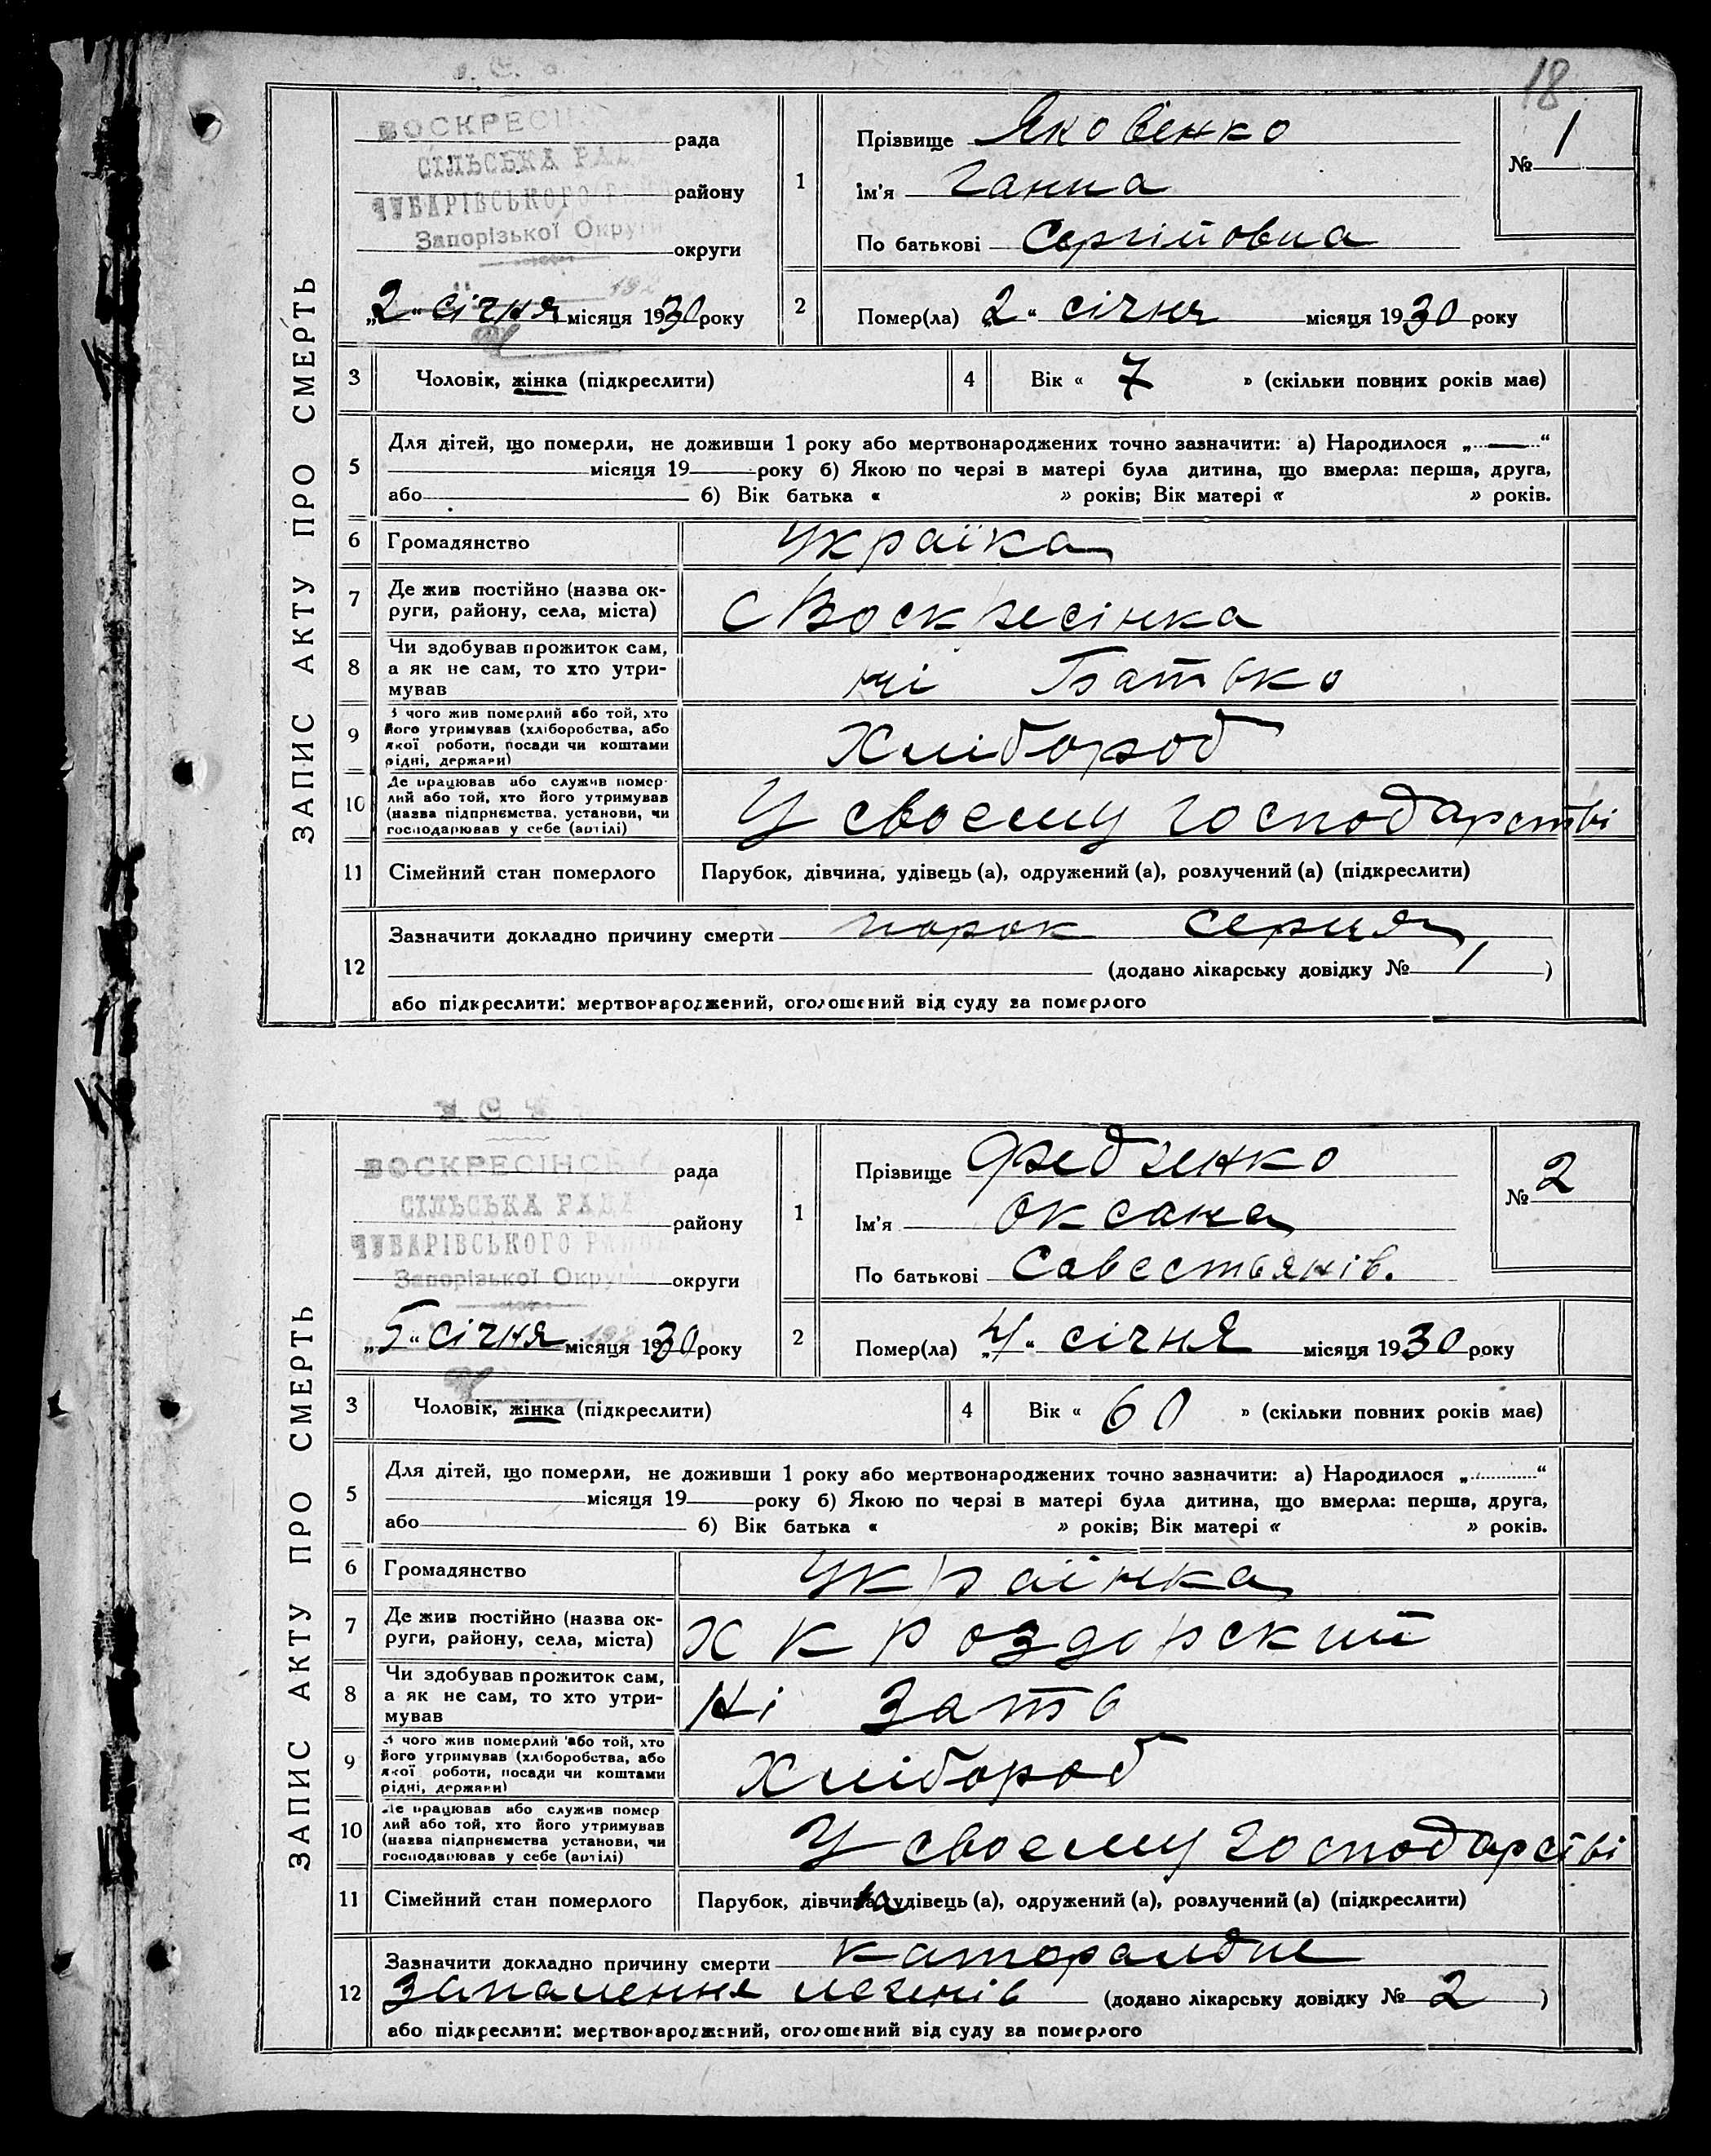 18
ЗАПИС АКТУ ПРО СМЕРТЬ
ВОСКРЕСІН рада
СІЛЬСЬКА РАДА
району
ЧУБАРІВСЬКОГО
Запорізької Округи
округи
„2“ січня місяця 1930 року
1
Прізвище Яковенко
Ім'я Ганна
По батькові Сергійовна
№ 1
2
Помер(ла) „2“ січня місяця 1930 року
3 Чоловік, жінка (підкреслити)
4 Вік « 7 » (скільки повних років має)
5 Для дітей, що померли, не доживши 1 року або мертвонароджених точно зазначити: а) Народилося „—“
місяця 19 року б) Якою по черзі в матері була дитина, що вмерла: перша, друга,
або б) Вік батька « » років; Вік матері « » років.
6 Громадянство Украіка
7 Де жив постійно (назва ок-
руги, району, села, міста) с Воскресінка
8 Чи здобував прожиток сам,
а як не сам, то хто утри-
мував ні Батько
9 З чого жив померлий або той, хто
його утримував (хліборобства, або
якої роботи, посади чи коштами
рідні, держави) Хлібороб
10 Де працював або служив помер-
лий або той, хто його утримував
(назва підприємства, установи, чи
господарював у себе (артілі) У своему господарстві
11 Сімейний стан померлого Парубок, дівчина, удівець (а), одружений (а), розлучений (а) (підкреслити)
12 Зазначити докладно причину смерти порок серця
(додано лікарську довідку № 1 )
або підкреслити: мертвонароджений, оголошений від суду за померлого
ЗАПИС АКТУ ПРО СМЕРТЬ
ВОСКРЕСІНСЬК рада
СІЛЬСЬКА РАДА
району
ЧУБАРІВСЬКОГО РАЙОН
Запорізької Округи
округи
„5“ січня місяця 1930 року
1
Прізвище Федченко
Ім'я Оксана
По батькові Савестьянів.
№ 2
2
Помер(ла) „4“ січня місяця 1930 року
3 Чоловік, жінка (підкреслити)
4 Вік « 60 » (скільки повних років має)
5 Для дітей, що померли, не доживши 1 року або мертвонароджених точно зазначити: а) Народилося „ “
місяця 19 року б) Якою по черзі в матері була дитина, що вмерла: перша, друга,
або б) Вік батька « » років; Вік матері « » років.
6 Громадянство Украінка
7 Де жив постійно (назва ок-
руги, району, села, міста) х К роздорский
8 Чи здобував прожиток сам,
а як не сам, то хто утри-
мував Ні Зать
9 З чого жив померлий або той, хто
його утримував (хліборобства, або
якої роботи, посади чи коштами
рідні, держави) Хлібороб
10 Де працював або служив помер
лий або той, хто його утримував
(назва підприємства установи, чи
господарював у себе (артілі) У своему господарстві
11 Сімейний стан померлого Парубок, дівчина, удівець (а), одружений (а), розлучений (а) (підкреслити)
12 Зазначити докладно причину смерти
Запалення легенів (додано лікарську довідку № 2 )
або підкреслити: мертвонароджений, оголошений від суду за померлого